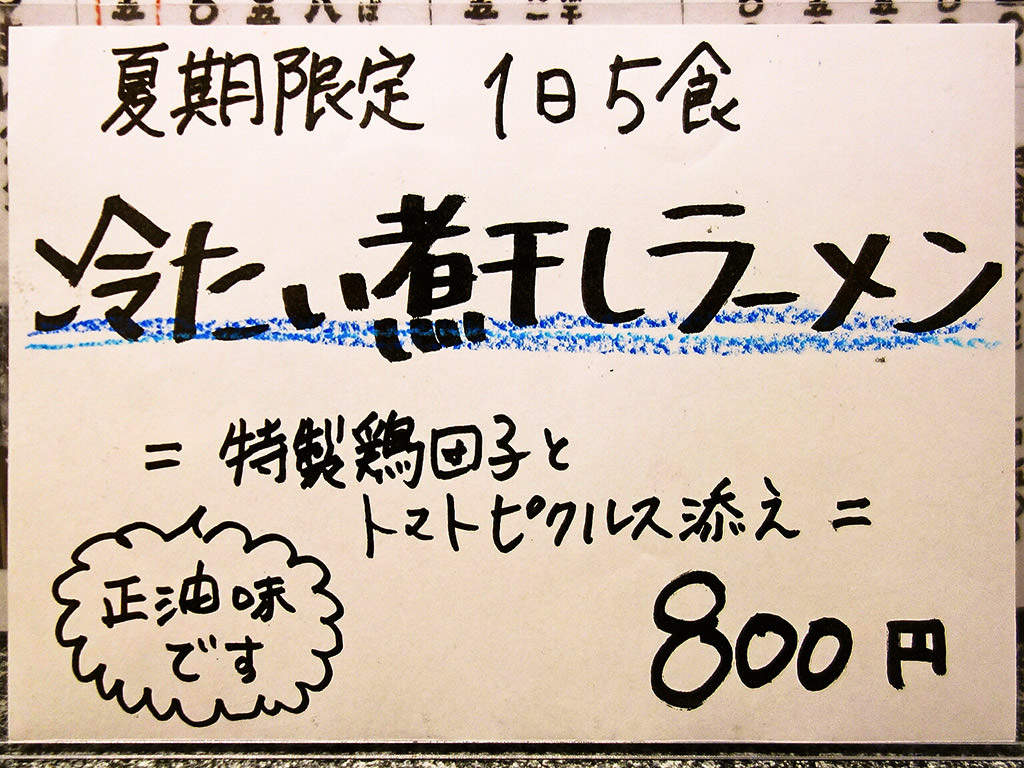 夏期限定 1日5食
冷たい煮干しラーメン
= 特製鶏団子と
トマトピクルス添え =
正油味
です
800円